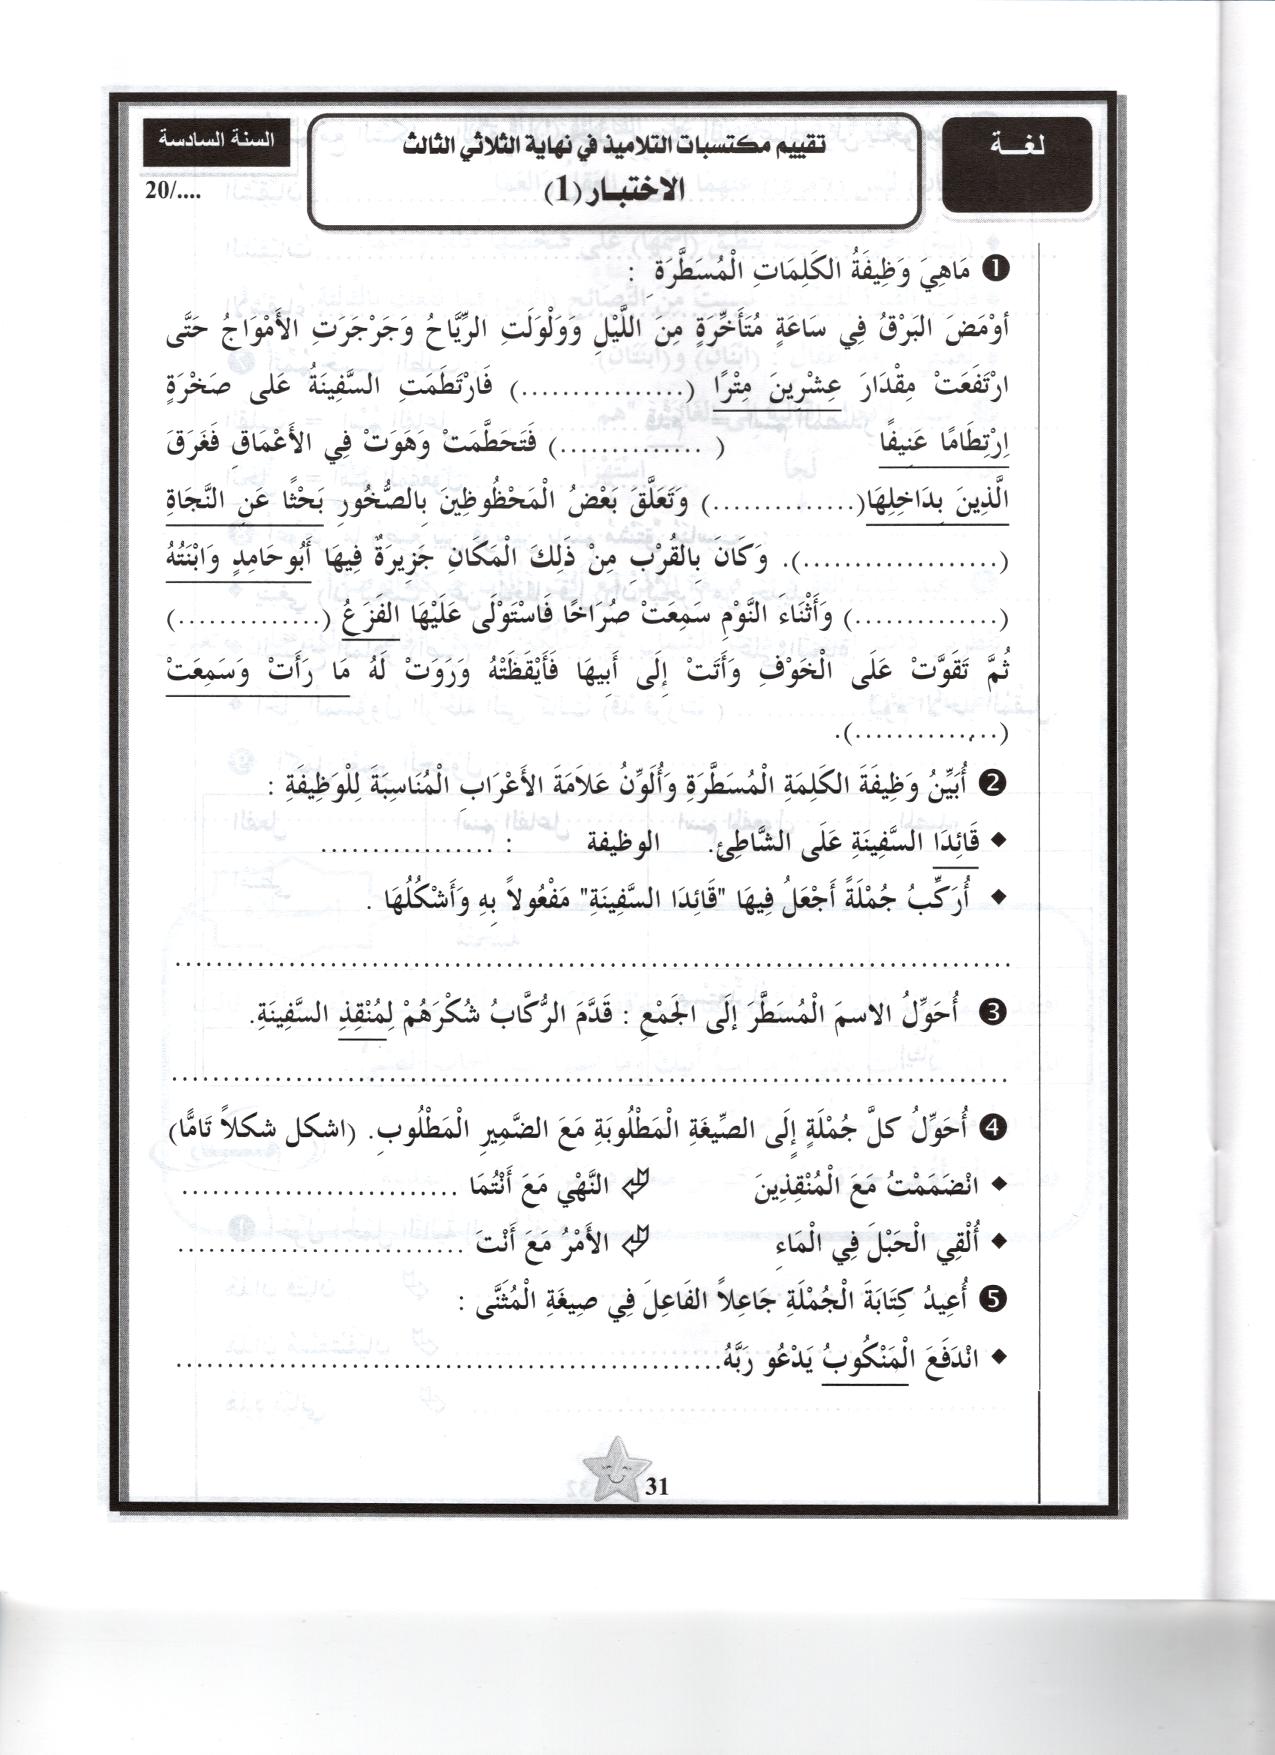 لغـــة
تقييم مكتسبات التلاميذ في نهاية الثلاثي الثالث
السنة السادسة
الاختبـار (1)
..../20
❶ مَاهِيَ وَظِيفَةُ الكَلِمَاتِ الْمُسَطَّرَةِ :
أوْمَضَ البَرْقُ فِي سَاعَةٍ مُتَأَخِّرَةٍ مِنَ اللَّيْلِ وَوَلْوَلَتِ الرِّيَّاحُ وَجَرْجَرَتِ الأَمْوَاجُ حَتَّى
ارْتَفَعَتْ مِقْدَارَ عِشْرِينَ مِتْرًا (................) فَارْتَطَمَتِ السَّفِينَةُ عَلى صَخْرَةٍ
اِرْتِطَامًا عَنِيفًا ( ..............) فَتَحَطَّمَتْ وَهَوَتْ فِي الأَعْمَاقِ فَغَرَقَ
الَّذِينَ بِدَاخِلِهَا(..............) وَتَعَلَّقَ بَعْضُ الْمَحْظُوظِينَ بِالصُّخُورِ بَحْثًا عَنِ النَّجَاةِ
(...................). وَكَانَ بِالقُرْبِ مِنْ ذَلِكَ الْمَكَانِ جَزِيرَةٌ فِيهَا أَبُو حَامِدٍ وَابْنَتُهُ
(..............) وَأَثْنَاءَ النَّوْمِ سَمِعَتْ صُرَاخًا فَاسْتَوْلَى عَلَيْهَا الفَزَعُ (..............)
ثُمَّ تَقَوَّتْ عَلَى الخَوْفِ وَأَتَتْ إِلَى أَبِيهَا فَأَيْقَظَتْهُ وَرَوَتْ لَهُ مَا رَأَتْ وَسَمِعَتْ
(..............).
❷ أُبَيِّنُ وَظِيفَةَ الكَلِمَةِ الْمُسَطَّرَةِ وَأُلَوِّنُ عَلاَمَةَ الأَعْرَابِ الْمُنَاسِبَةَ لِلْوَظِيفَةِ :
◆ قَائِدَا السَّفِينَةِ عَلَى الشَّاطِئِ. الوظيفة : .................
◆ أُرَكِّبُ جُمْلَةً أَجْعَلُ فِيهَا "قَائِدَا السَّفِينَةِ" مَفْعُولاً بِهِ وَأَشْكُلُهَا .
................................................................................
❸ أُحَوِّلُ الاسمَ الْمُسَطَّرَ إلَى الجَمْعِ : قَدَّمَ الرُّكَّابُ شُكْرَهُمْ لِمُنْقِذِ السَّفِينَةِ.
................................................................................
❹ أُحَوِّلُ كلَّ جُمْلَةٍ إِلَى الصِّيغَةِ الْمَطْلُوبَةِ مَعَ الضَّمِيرِ الْمَطْلُوبِ. (اشكل شكلاً تَامًّا)
◆ انْضَمَمْتُ مَعَ الْمُنْقِذِينَ النَّهْي مَعَ أَنْتُمَا ...........................
◆ أُلْقِي الْحَبْلَ فِي الْمَاءِ الأَمْرُ مَعَ أَنْتَ ...........................
❺ أُعِيدُ كِتَابَةَ الْجُمْلَةِ جَاعِلاً الفَاعِلَ فِي صِيغَةِ الْمُثَنَّى :
◆ انْدَفَعَ الْمَنْكُوبُ يَدْعُو رَبَّهُ....................................................
31